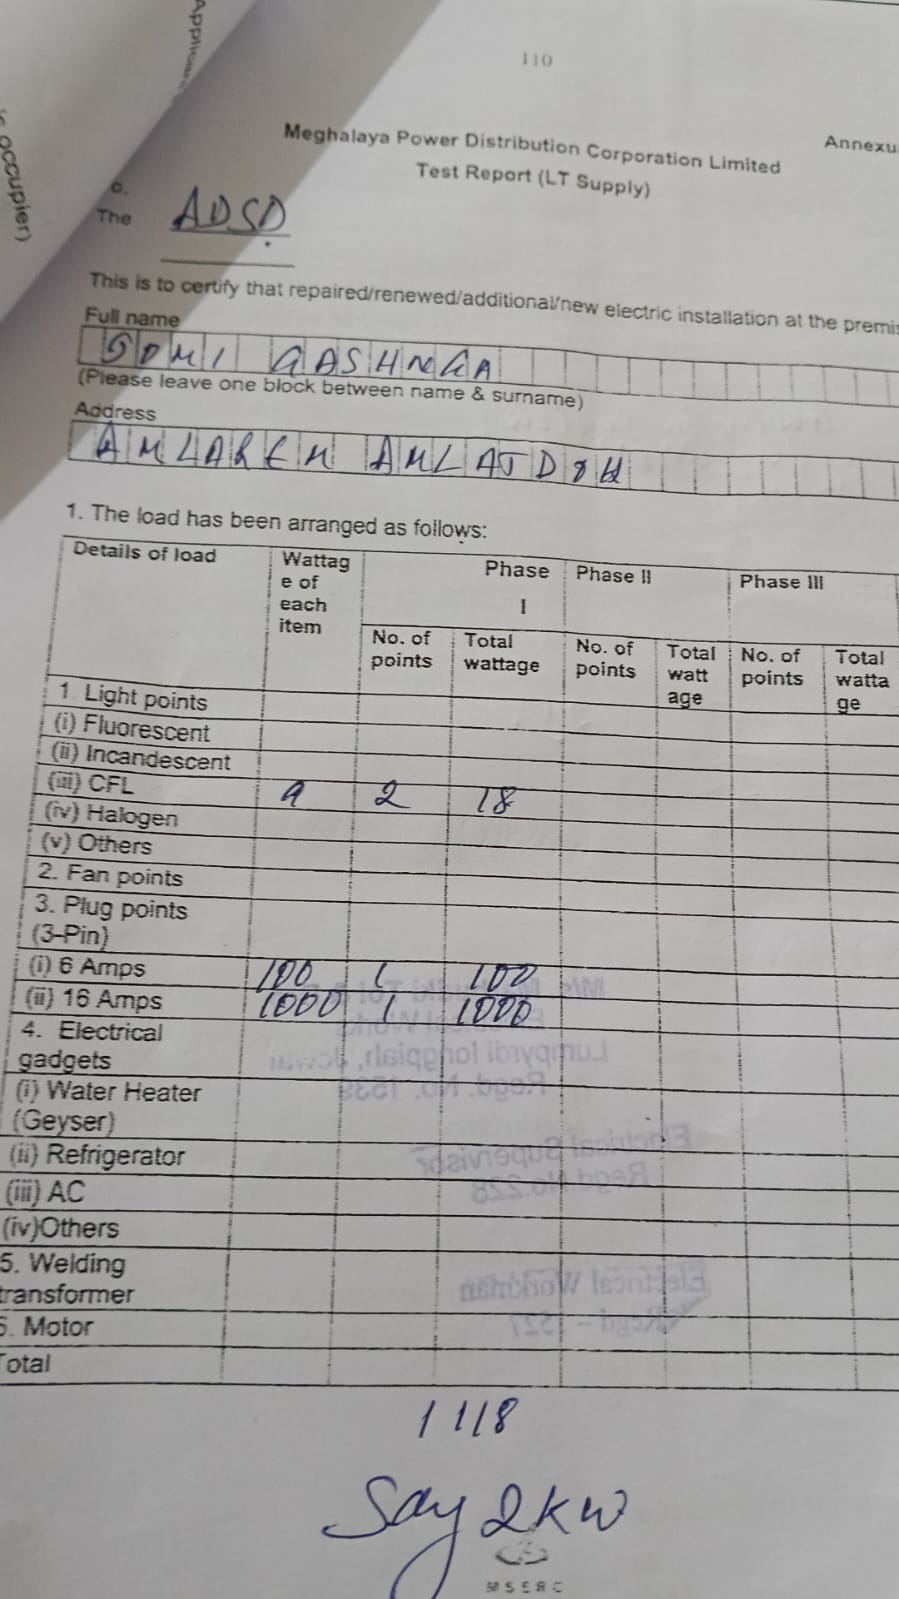 Applican
occupier)
110
Annexu
Meghalaya Power Distribution Corporation Limited
Test Report (LT Supply)
o.
The ADSD
This is to certify that repaired/renewed/additional/new electric installation at the premis
Full name
SOMI GASHNGA
(Please leave one block between name & surname)
Address
AMLAREM
1. The load has been arranged as follows:
Details of load Wattag e of each item Phase I Phase II Phase III
No. of points Total wattage No. of points Total watt age No. of points Total watta ge
1. Light points
(i) Fluorescent
(ii) Incandescent
(iii) CFL 9 2 18
(iv) Halogen
(v) Others
2. Fan points
3. Plug points
(3-Pin)
(i) 6 Amps 100 1 100
(ii) 16 Amps 1000 1 1000
4. Electrical
gadgets
(i) Water Heater
(Geyser)
(ii) Refrigerator
(iii) AC
(iv)Others
5. Welding
transformer
6. Motor
Total
1118
Say 2KW
MSERC